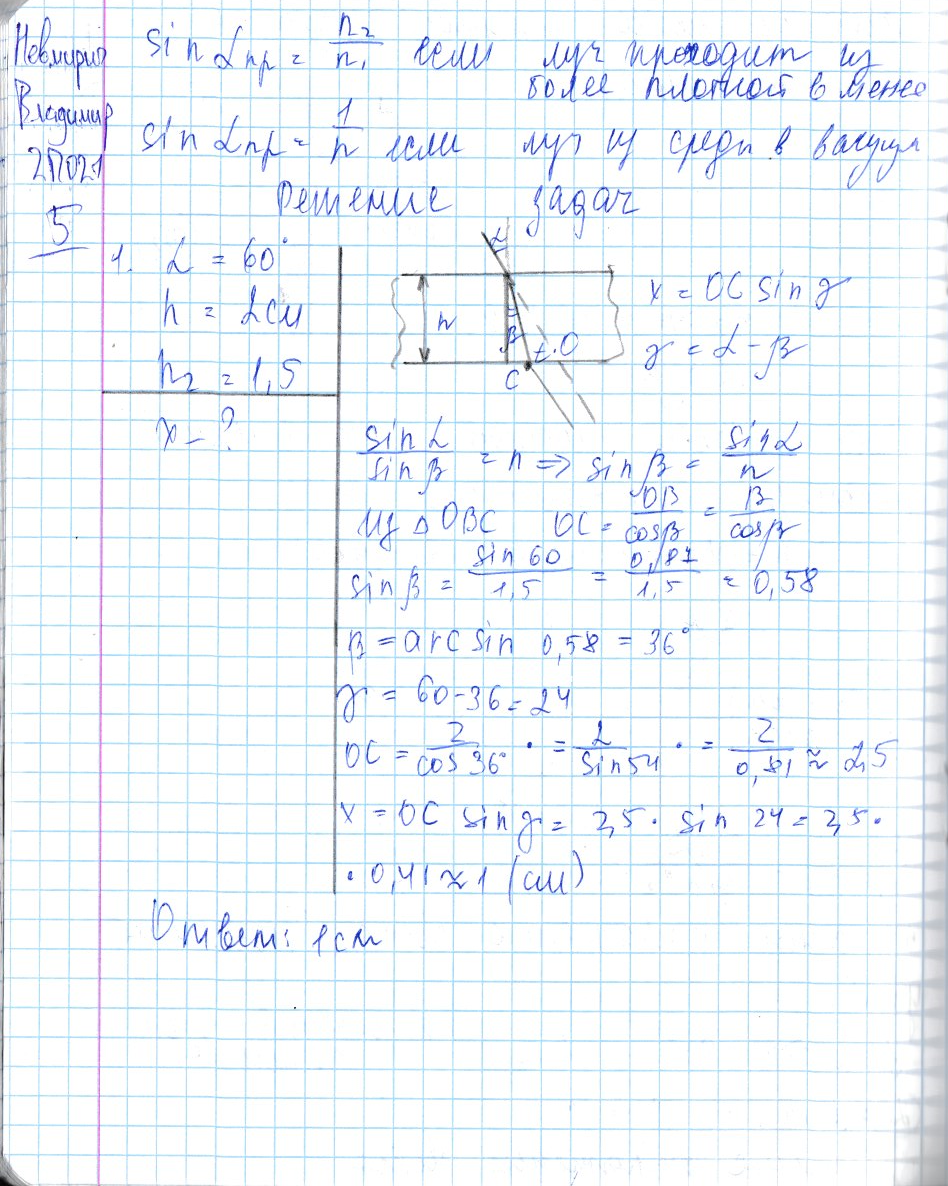 Невмирич
Владимир
2П021
5
sin α пр = n₂/n₁ если луч проходит из
более плотной в менее
sin α пр = 1/n если луч из среды в вакуум
Решение задач
1. α = 60°
h = 2см
n₂ = 1,5
x - ?
α
h
β
t.O
C
x = OC sin γ
γ = α - β
sin α / sin β = n => sin β = sin α / n
Из △ OBC OC = OB / cos β = B / cos β
sin β = sin 60 / 1,5 = 0,87 / 1,5 = 0,58
β = arc sin 0,58 = 36°
γ = 60 - 36 = 24
OC = 2 / cos 36° · = 2 / sin 54 · = 2 / 0,81 ≈ 2,5
x = OC sin γ = 2,5 · sin 24 = 2,5 ·
· 0,41 ≈ 1 (см)
Ответ: 1см